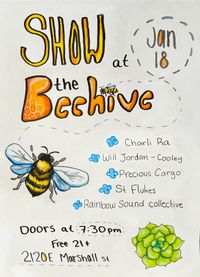 SHOW at Jan 18
the
Beehive
Charli Ra
Will Jordan-Cooley
Precious Cargo
St Flukes
Rainbow Sound collective
DOORS at 7:30pm
Free 21+
2120 E Marshall St